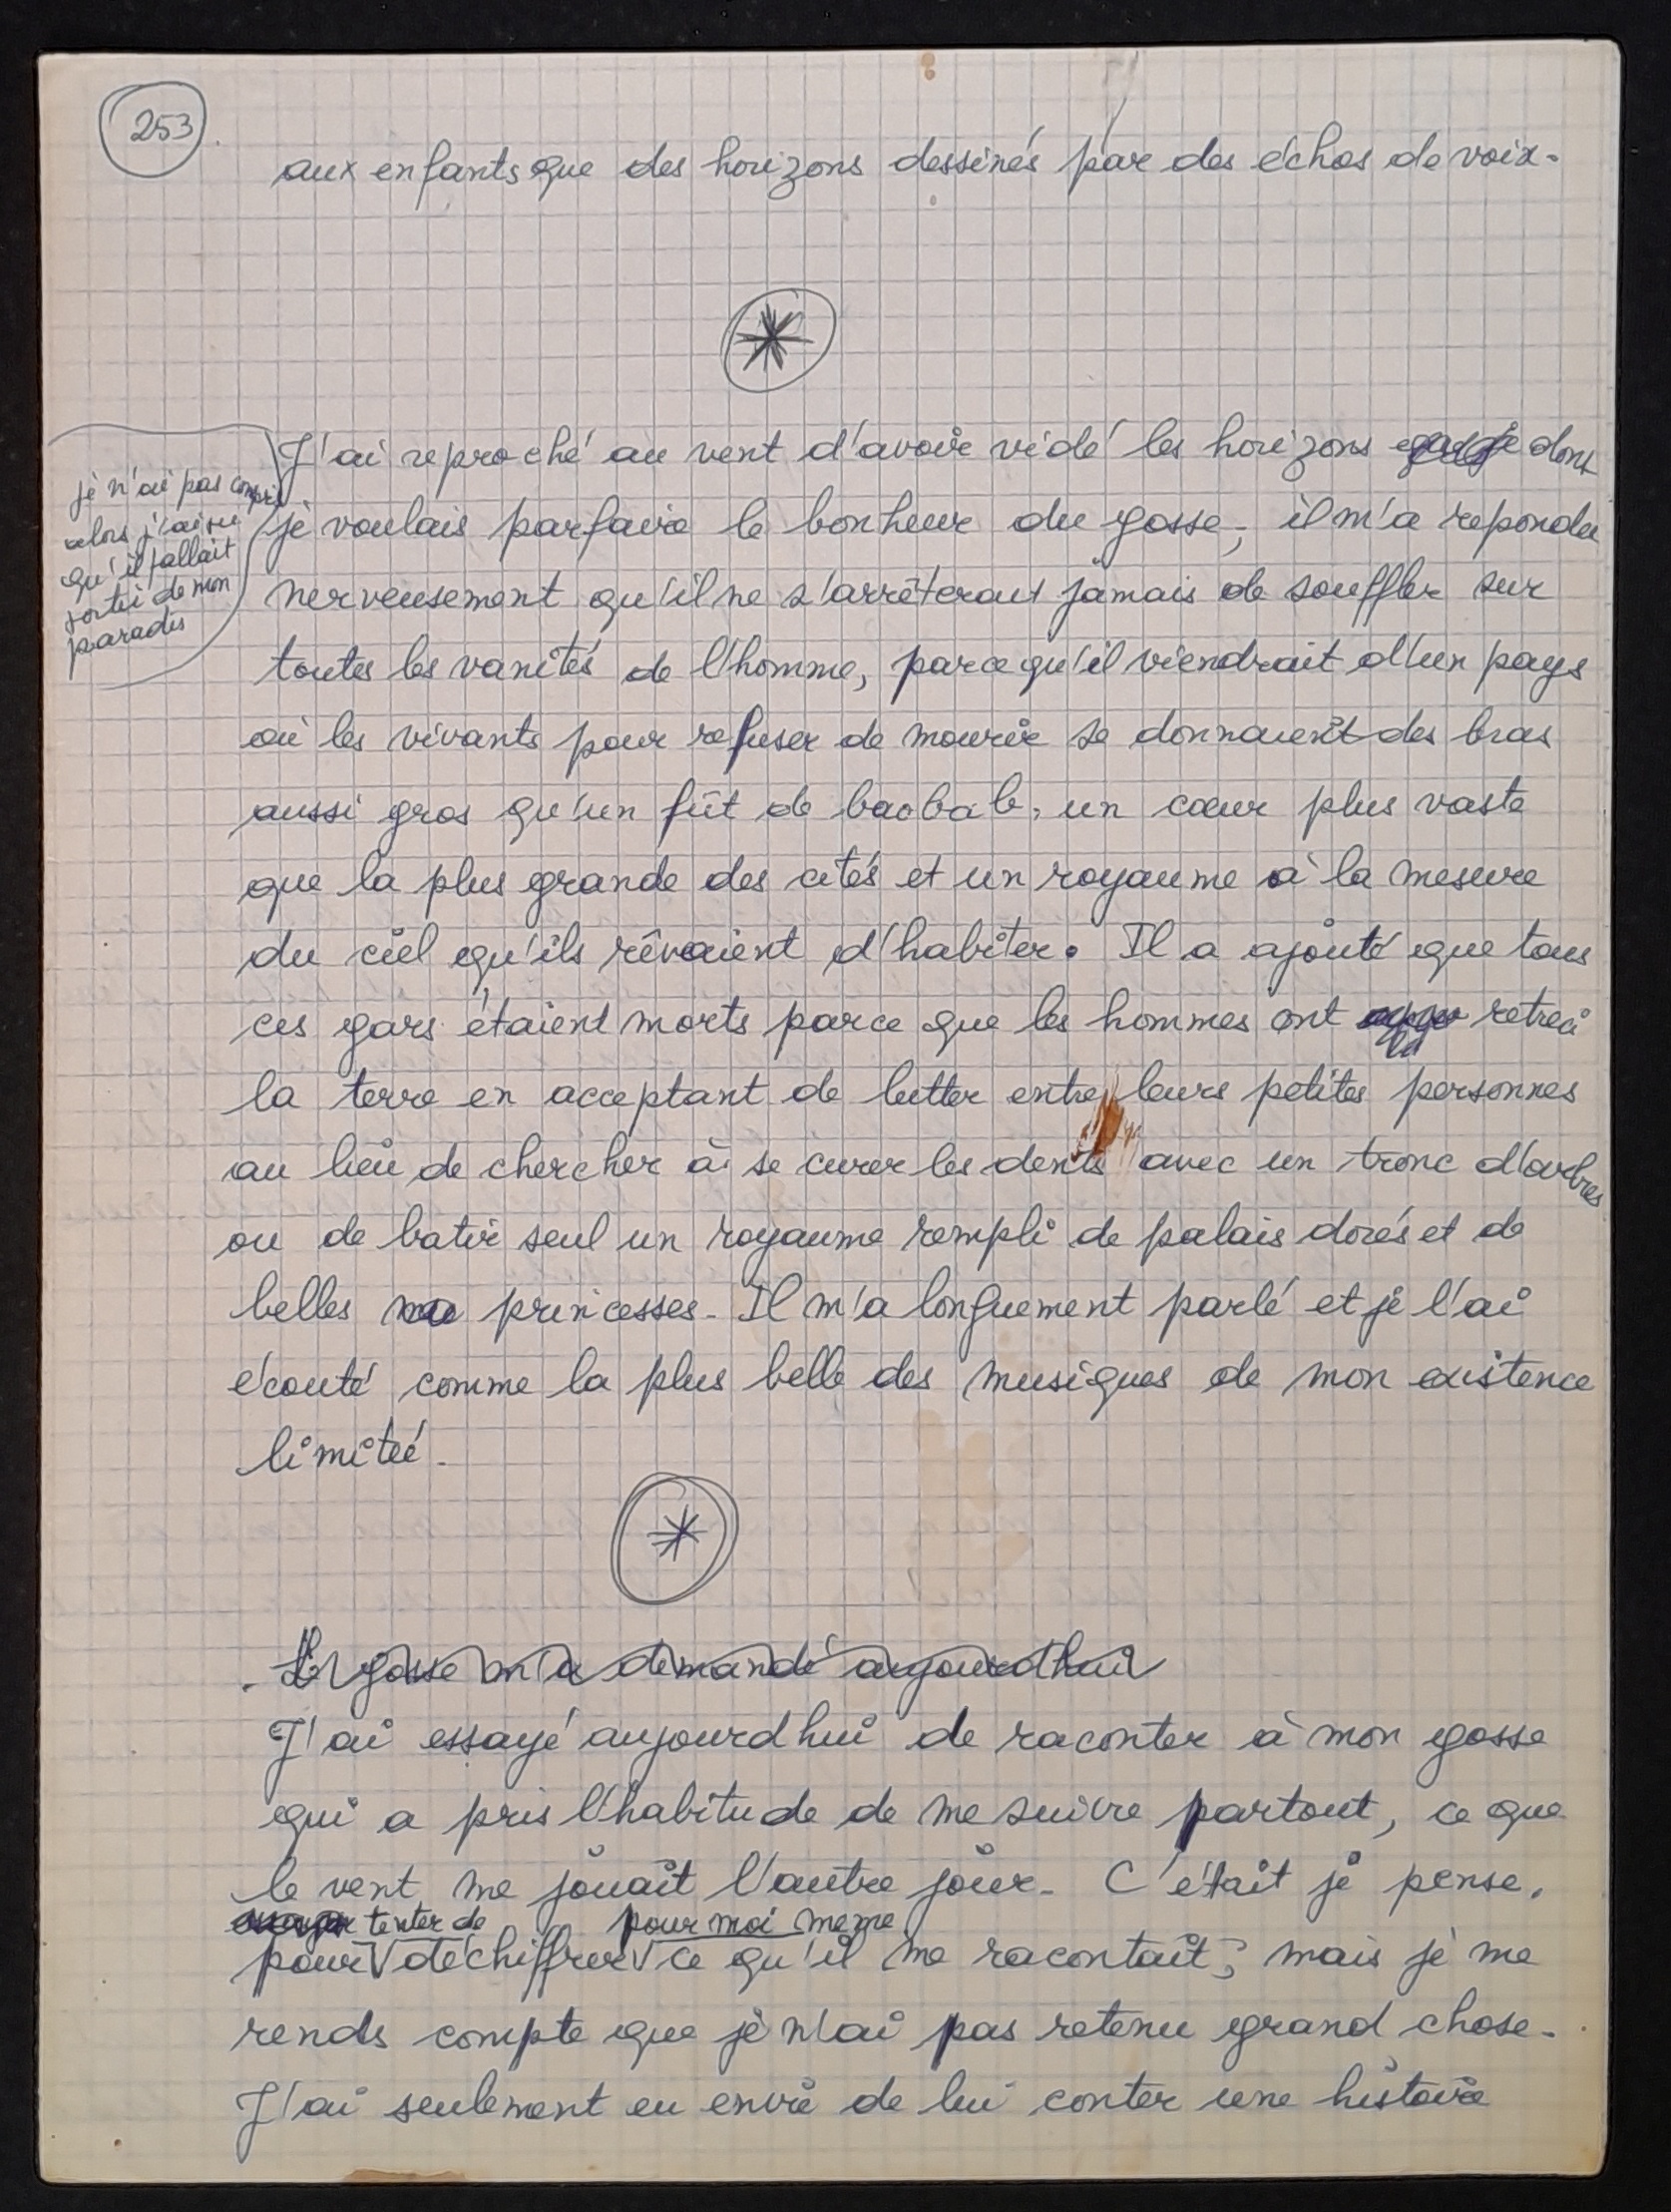 253
aux enfants que des horizons dessinés par des échos de voix.
J'ai reproché au vent d'avoir vidé les horizons dont
je n'ai pas compris
alors j'ai su
qu'il fallait
sortir de mon
paradis
je voulais parfaire le bonheur du gosse, il m'a repondu
nerveusement qu'il ne s'arrêterait jamais de souffler sur
toutes les vanités de l'homme, parce qu'il viendrait d'un pays
où les vivants pour refuser de mourir se donnaient des bras
aussi gros qu'un fût de baobab, un cœur plus vaste
que la plus grande des cités et un royaume à la mesure
du ciel qu'ils rêvaient d'habiter. Il a ajouté que tous
ces gars étaient morts parce que les hommes ont retreci
la terre en acceptant de lutter entre leurs petites personnes
au lieu de chercher à se curer les dents avec un tronc d'arbres
ou de batir seul un royaume rempli de palais dorés et de
belles princesses. Il m'a longuement parlé et je l'ai
écouté comme la plus belle des musiques de mon existence
limitée.
Le gosse m'a demandé aujourd'hui
J'ai essayé aujourd hui de raconter à mon gosse
qui a pris l'habitude de me suivre partout, ce que
le vent me jouait l'autre jour. C'était je pense,
tenter de pour moi meme
pour déchiffrer ce qu'il me racontait; mais je me
rends compte que je n'ai pas retenu grand chose.
J'ai seulement eu envie de lui conter une histoire